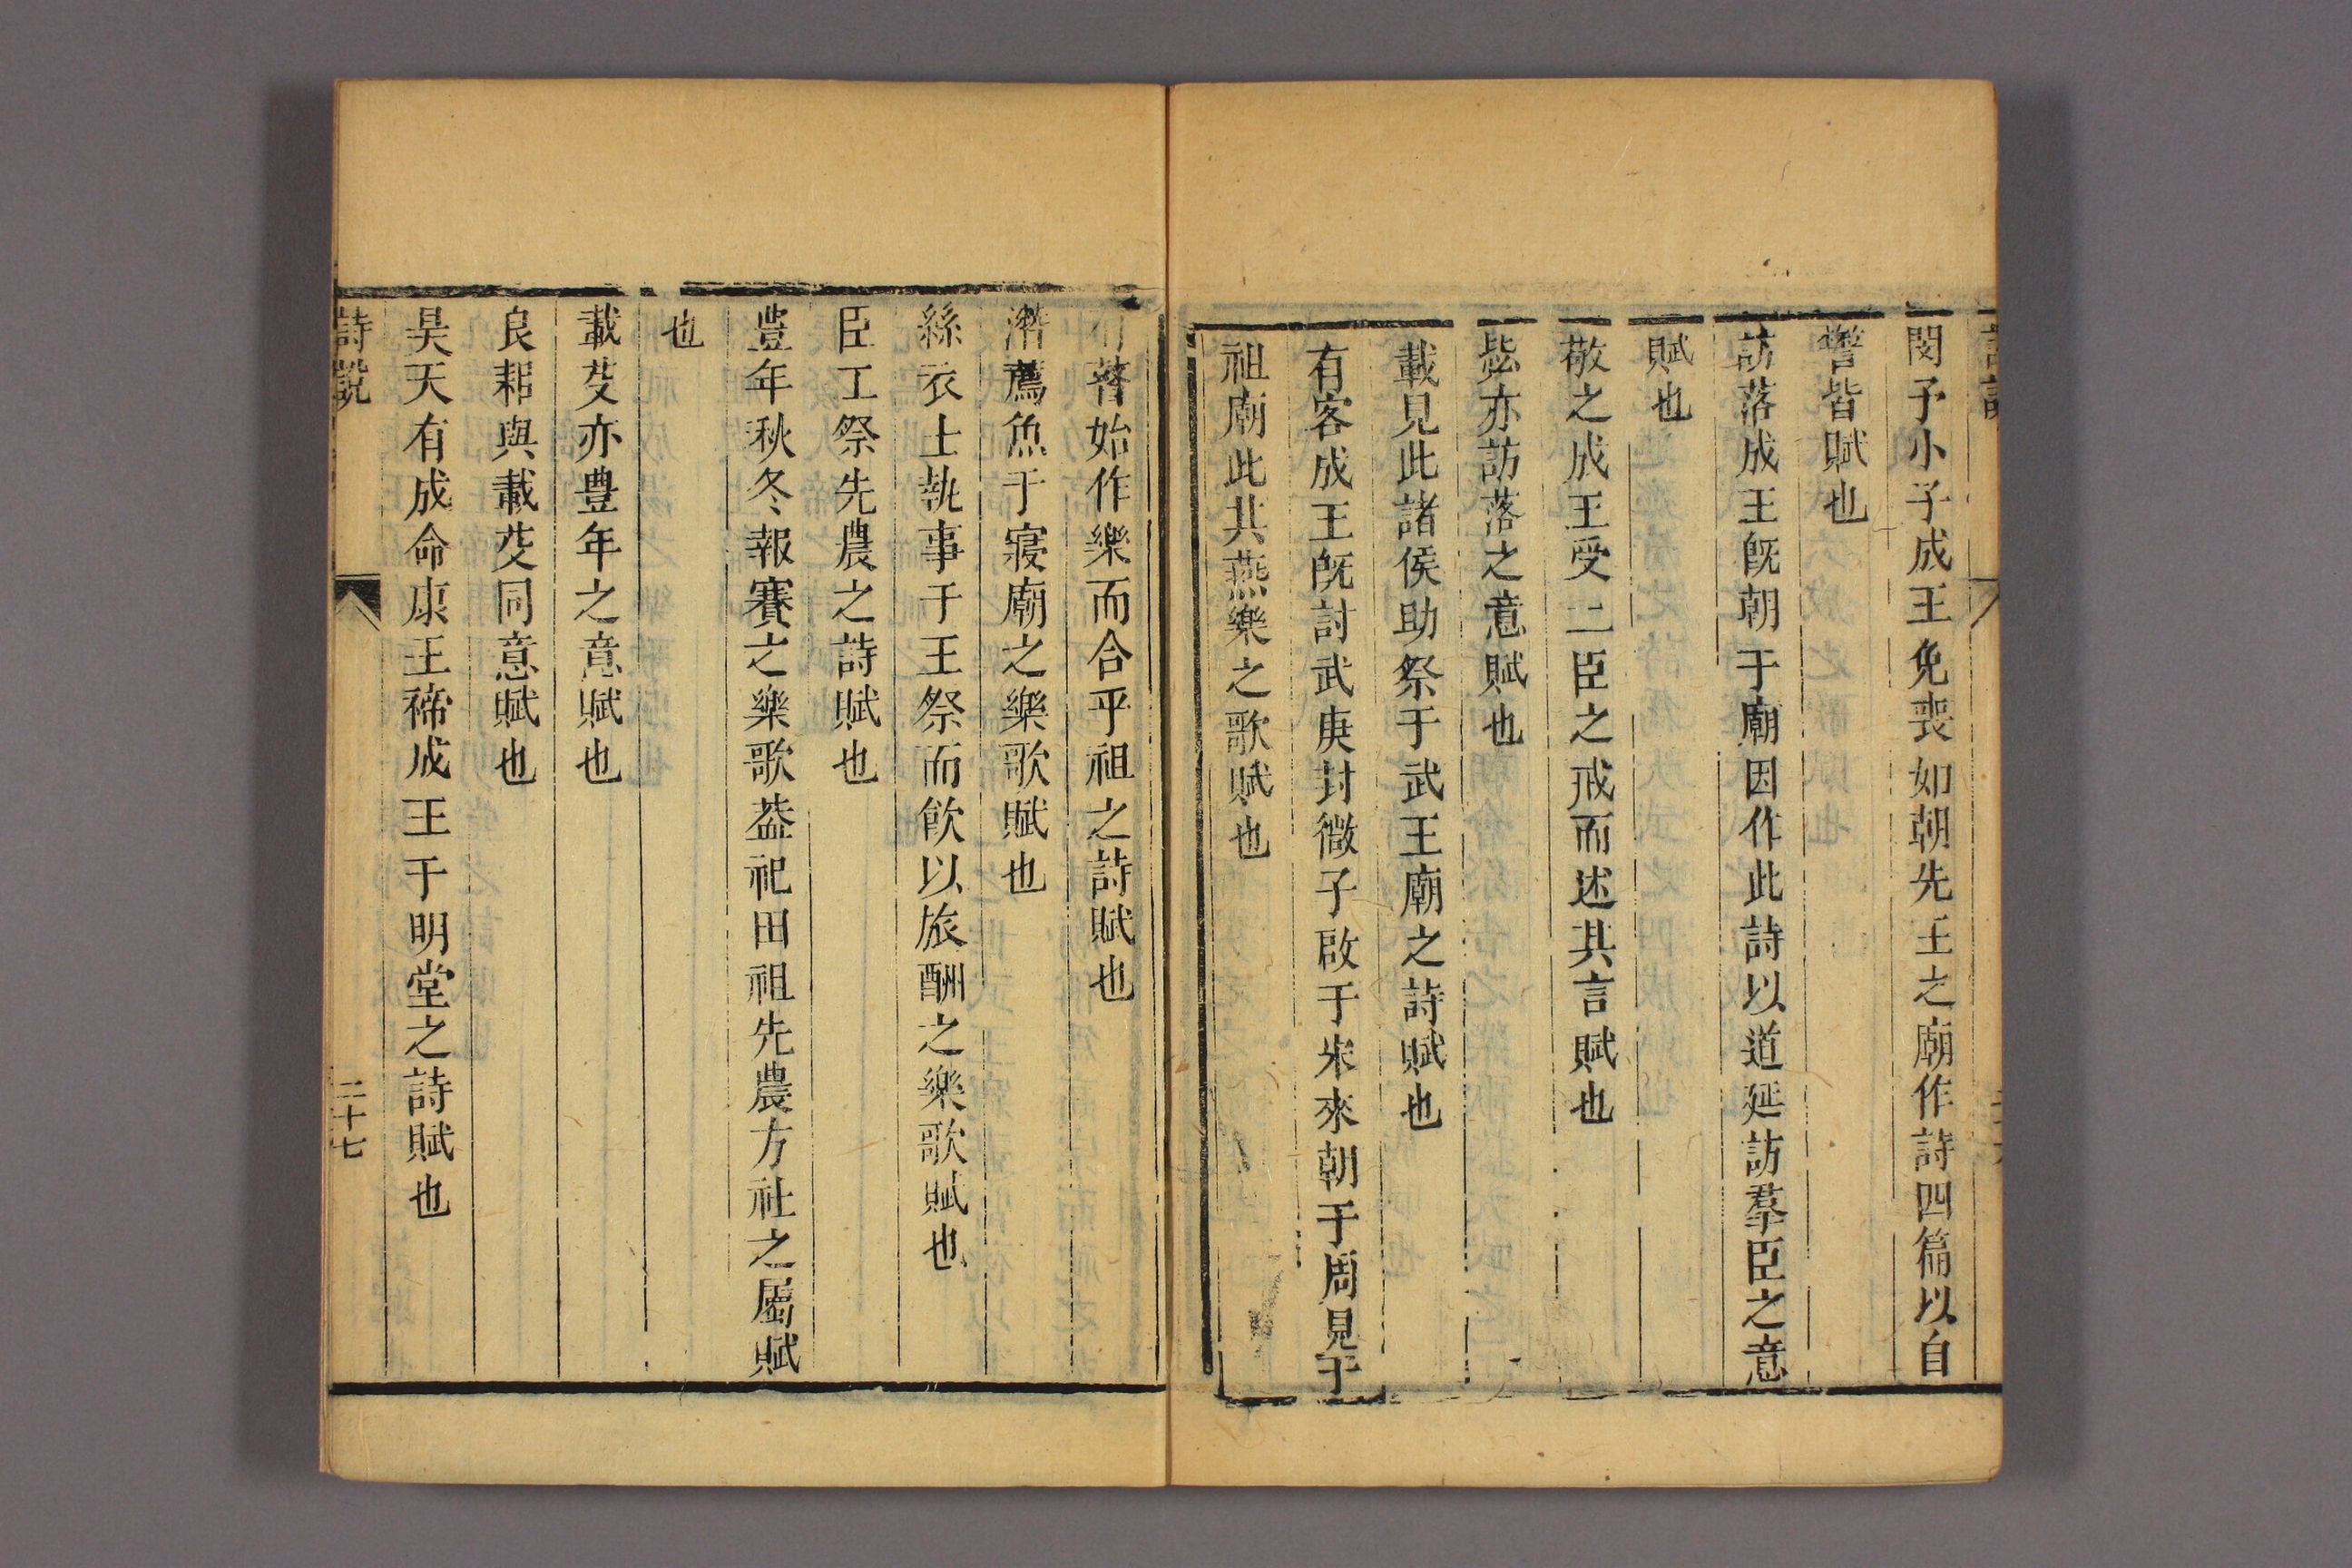 閔予小子成王免喪如朝先王之廟作詩四篇以自
警皆賦也
訪落成王旣朝于廟因作此詩以道延訪羣臣之意
賦也
敬之成王受二臣之戒而述其言賦也
毖亦訪落之意賦也
載見此諸侯助祭于武王廟之詩賦也
有客成王旣討武庚封微子啟于宋來朝于周見于
祖廟此其燕樂之歌賦也
有瞽始作樂而合乎祖之詩賦也
潛薦魚于寢廟之樂歌賦也
絲衣士執事于王祭而飲以旅酬之樂歌賦也
臣工祭先農之詩賦也
豊年秋冬報賽之樂歌葢祀田祖先農方社之屬賦
也
載芟亦豊年之意賦也
良耜與載芟同意賦也
昊天有成命康王禘成王于明堂之詩賦也
詩說
二十七